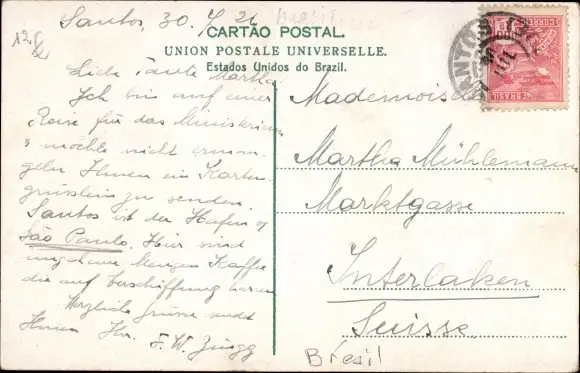 Santos, 30. 7/26
Bresil
CARTÃO POSTAL.
UNION POSTALE UNIVERSELLE.
Estados Unidos do Brazil.
Liebe Tante Martha
Ich bin auf einer
Reise für das Ministerium
möchte nicht erman-
geln Ihnen ein Karten-
grüsslein zu senden.
Santos ist der Hafen v
São Paulo. Hier sind
ungeheure Mengen Kaffee
die auf Beschiffung warten
Herzliche Grüsse sendet
Ihnen Ihr F. W. Zingg
Mademoiselle
Martha Mühlemann
Marktgasse
Interlaken
Suisse
Brésil
SANTOS
CORREIO
BRASIL